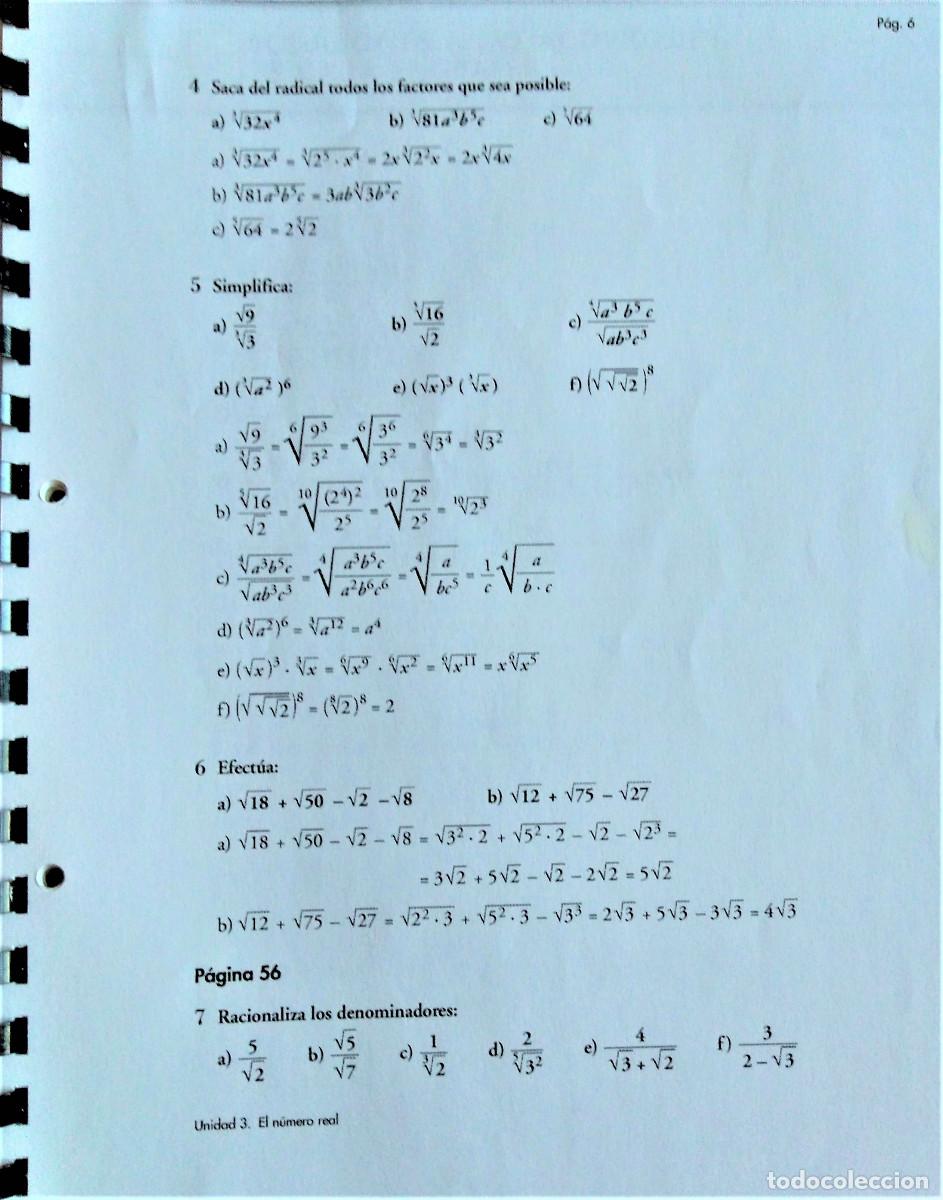 Pág. 6
4 Saca del radical todos los factores que sea posible:
a) ∛32x⁴ b) ∛81a³b⁵c c) ⁵√64
a) ∛32x⁴ = ∛2⁵ · x⁴ = 2x∛2²x = 2x∛4x
b) ∛81a³b⁵c = 3ab∛3b²c
c) ⁵√64 = 2⁵√2
5 Simplifica:
a) √9/∛3 b) ⁵√16/√2 c) ⁴√a³ b⁵ c/√ab³c³
d) (∛a² )⁶ e) (√x)³ (∛x) f) (√√√2)⁸
a) √9/∛3 = ⁶√(9³/3²) = ⁶√(3⁶/3²) = ⁶√3⁴ = ∛3²
b) ⁵√16/√2 = ¹⁰√((2⁴)²/2⁵) = ¹⁰√(2⁸/2⁵) = ¹⁰√2³
c) ⁴√a³b⁵c/√ab³c³ = ⁴√(a³b⁵c/a²b⁶c⁶) = ⁴√(a/bc⁵) = 1/c ⁴√(a/b · c)
d) (∛a²)⁶ = ∛a¹² = a⁴
e) (√x)³ · ∛x = ⁶√x⁹ · ⁶√x² = ⁶√x¹¹ = x⁶√x⁵
f) (√√√2)⁸ = (⁸√2)⁸ = 2
6 Efectúa:
a) √18 + √50 – √2 – √8 b) √12 + √75 – √27
a) √18 + √50 – √2 – √8 = √3² · 2 + √5² · 2 – √2 – √2³ =
= 3√2 + 5√2 – √2 – 2√2 = 5√2
b) √12 + √75 – √27 = √2² · 3 + √5² · 3 – √3³ = 2√3 + 5√3 – 3√3 = 4√3
Página 56
7 Racionaliza los denominadores:
a) 5/√2 b) √5/√7 c) 1/∛2 d) 2/⁵√3² e) 4/(√3 + √2) f) 3/(2 – √3)
Unidad 3. El número real
todocoleccion